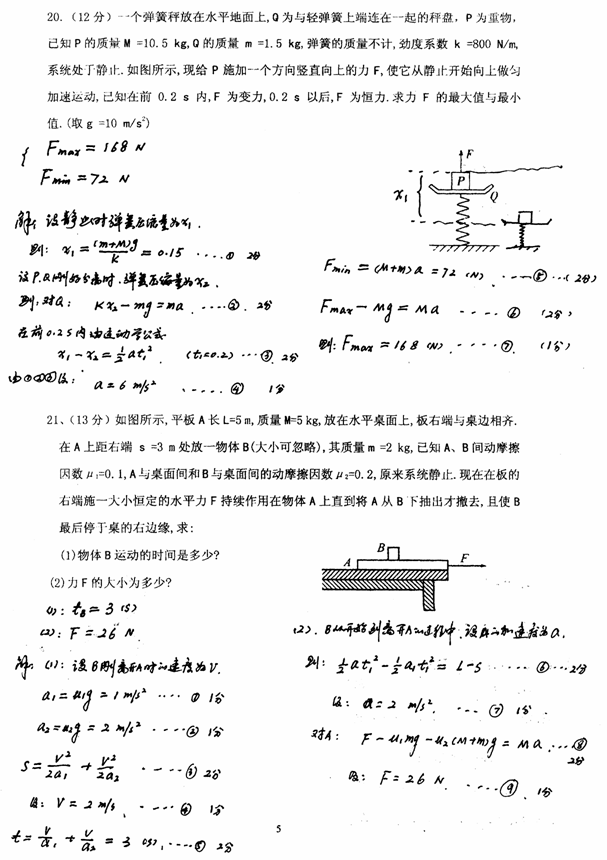 20. (12 分) 一个弹簧秤放在水平地面上,Q 为与轻弹簧上端连在一起的秤盘，P 为重物，
已知 P 的质量 M =10.5 kg,Q 的质量 m =1.5 kg,弹簧的质量不计,劲度系数 k =800 N/m,
系统处于静止.如图所示,现给 P 施加一个方向竖直向上的力 F,使它从静止开始向上做匀
加速运动,已知在前 0.2 s 内,F 为变力,0.2 s 以后,F 为恒力.求力 F 的最大值与最小
值.(取 g =10 m/s²)
{ Fmax = 168 N
Fmin = 72 N
F
P
Q
x₁
解: 设静止时弹簧压缩量为x₁.
则: x₁ = (m+M)g/K = 0.15 ....① 2分
设P.Q刚好分离时.弹簧压缩量为x₂.
则,对Q: Kx₂ - mg = ma ....②. 2分
在前0.2s内由运动学公式
x₁ - x₂ = ½at₁² (t₁=0.2)...③. 2分
由①②③得: a = 6 m/s² ....④ 1分
Fmin = (M+m)a = 72 (N) ....⑤...(2分)
Fmax - Mg = Ma ....⑥ (2分)
则: Fmax = 168 (N) .....⑦. (1分)
21、(13 分) 如图所示,平板 A 长 L=5 m,质量 M=5 kg,放在水平桌面上,板右端与桌边相齐.
在 A 上距右端 s =3 m 处放一物体 B(大小可忽略),其质量 m =2 kg,已知 A、B 间动摩擦
因数 μ₁=0.1,A 与桌面间和 B 与桌面间的动摩擦因数 μ₂=0.2,原来系统静止.现在在板的
右端施一大小恒定的水平力 F 持续作用在物体 A 上直到将 A 从 B 下抽出才撤去,且使 B
最后停于桌的右边缘,求:
(1)物体 B 运动的时间是多少?
(2)力 F 的大小为多少?
B
A
F
(1): tB = 3 (s)
(2): F = 26 N.
解: (1): 设B刚离开A时的速度为V.
a₁ = u₁g = 1 m/s² ....① 1分
a₂ = u₂g = 2 m/s² ....② 1分
S = V²/2a₁ + V²/2a₂ ....③ 2分
得: V = 2 m/s, ....④ 1分
t = V/a₁ + V/a₂ = 3 (s), ....⑤ 2分
(2). B从开始到离开A的过程中,设A的加速度为a.
则: ½at₁² - ½a₁t₁² = L-S ....⑥...2分
得: a = 2 m/s². ...⑦ 1分.
对A: F - u₁mg - u₂(M+m)g = Ma ...⑧
2分
得: F = 26 N. ....⑨. 1分
5